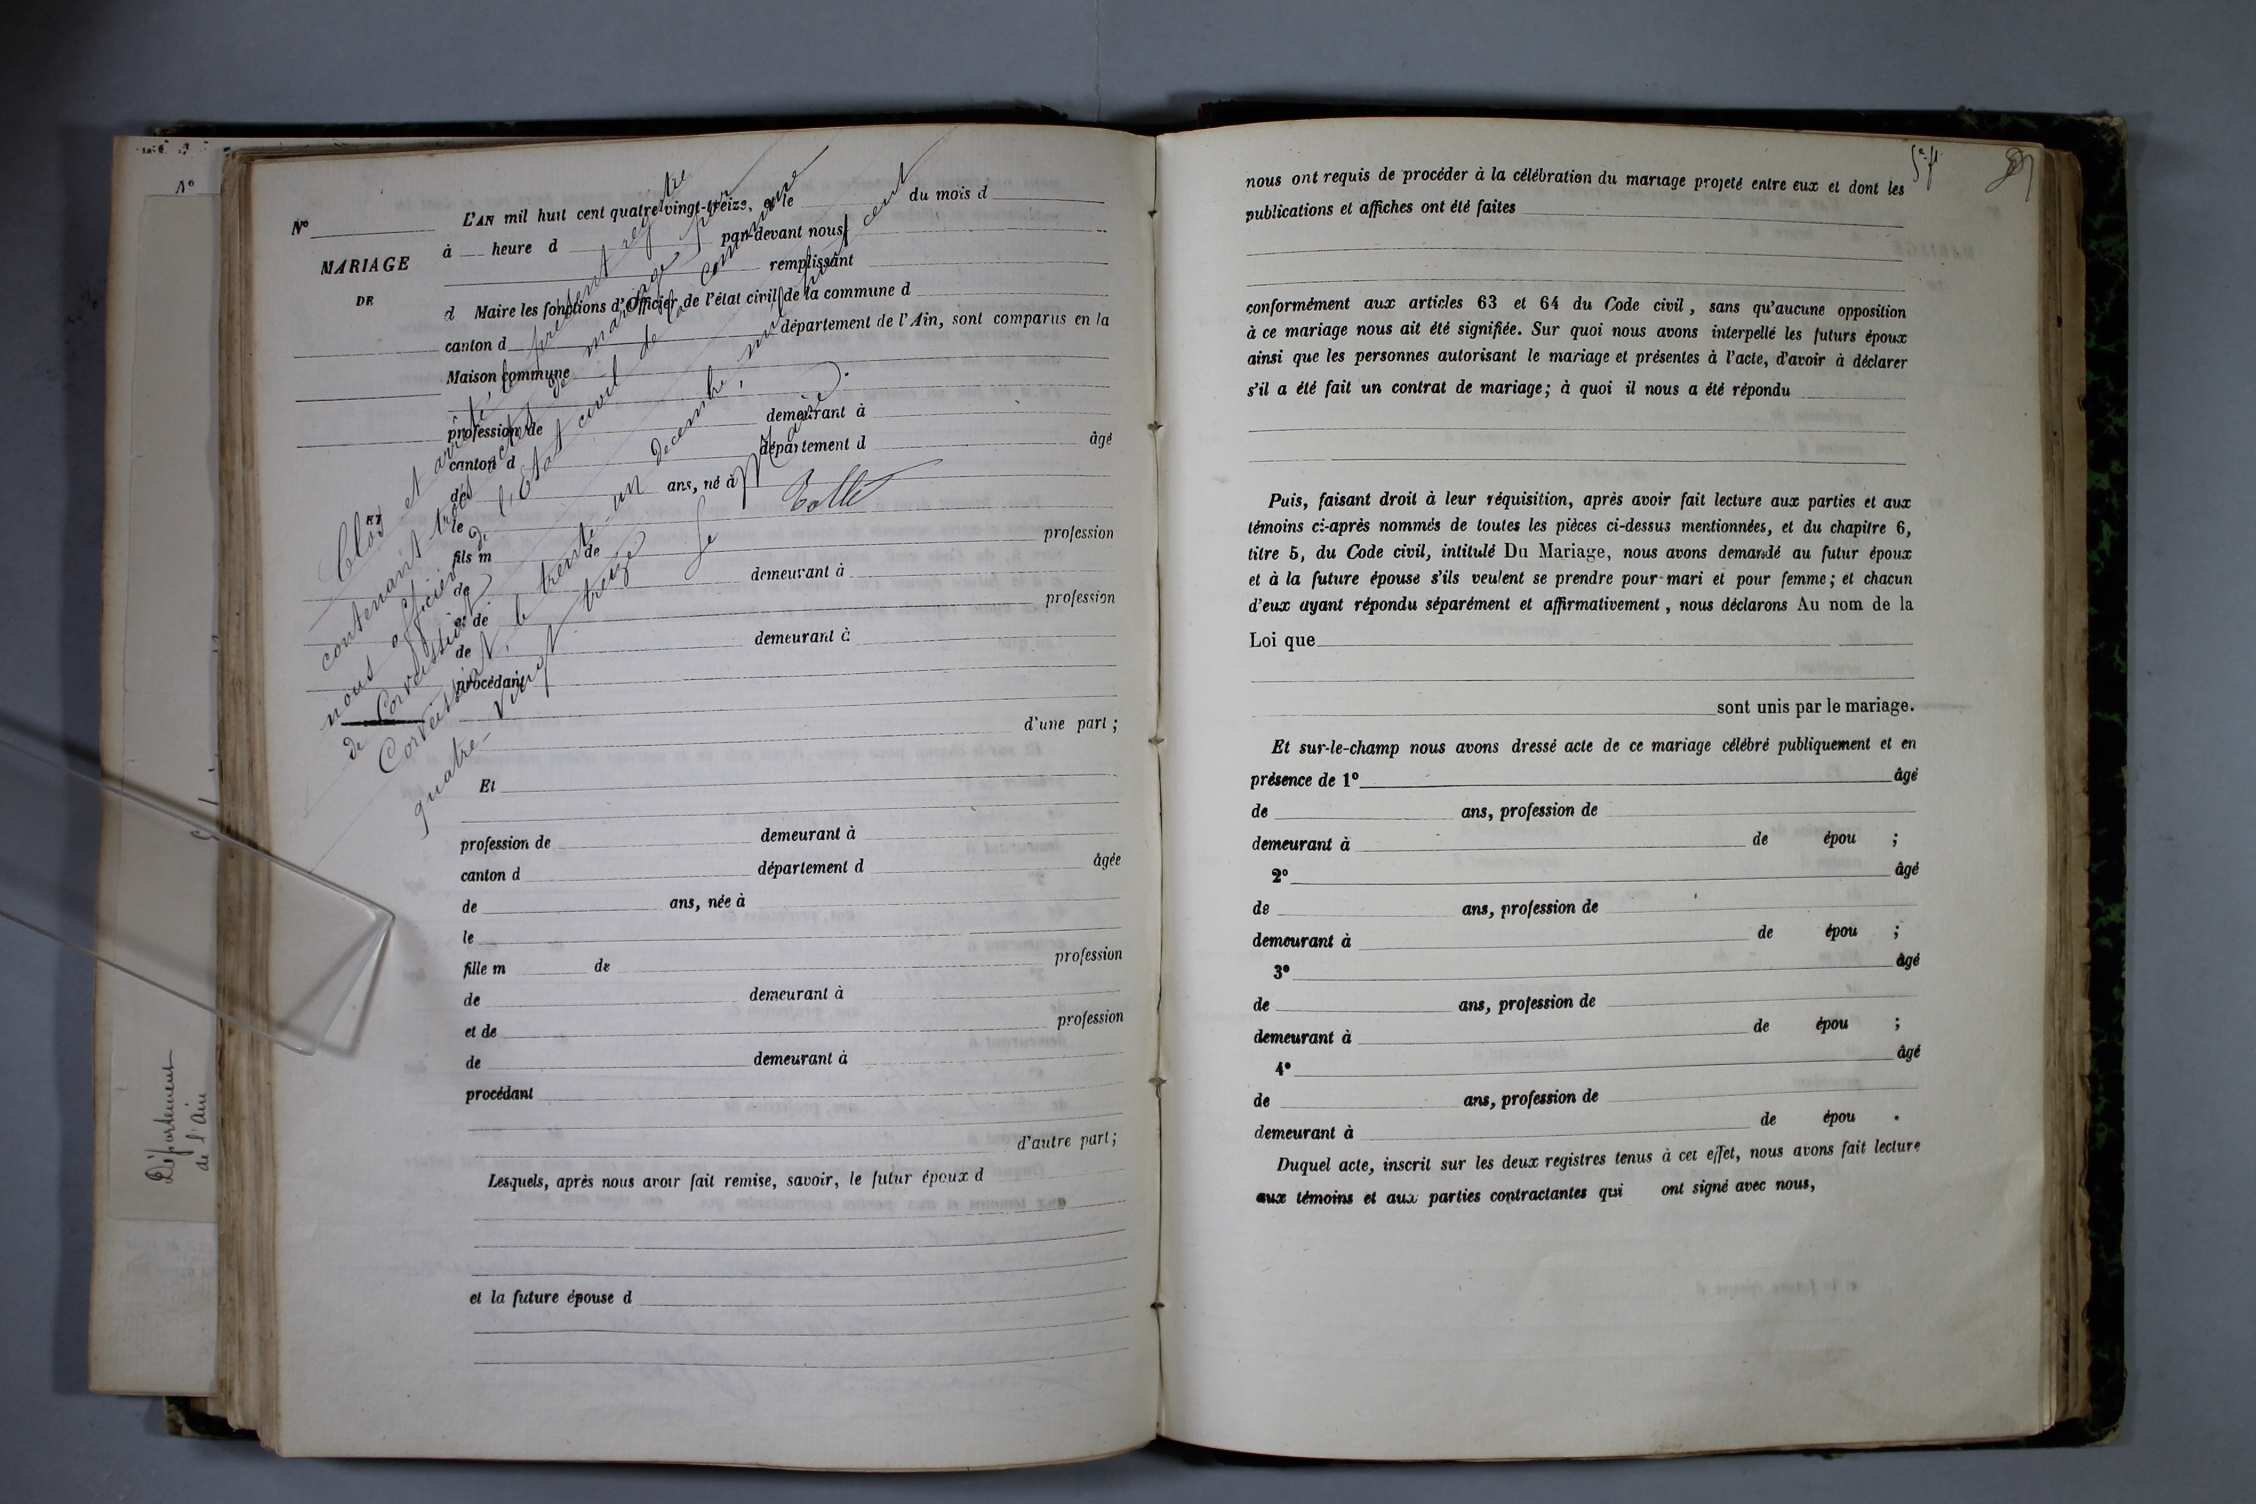 Nº
MARIAGE
DE
ET
L'AN mil huit cent quatre-vingt-treize, et le du mois d
à heure d par-devant nous
remplissant
d Maire les fonctions d'Officier de l'état civil de la commune d
canton d département de l'Ain, sont comparus en la
Maison commune
profession de demeurant à
canton d département d âgé
de ans, né à
le
fils m de profession
de demeurant à
et de profession
de demeurant à
procédant
d'une part ;
Et
profession de demeurant à
canton d département d âgée
de ans, née à
le
fille m de profession
de demeurant à
et de profession
de demeurant à
procédant
d'autre part ;
Lesquels, après nous avoir fait remise, savoir, le futur époux d
et la future épouse d
Clos et arrêté, le présent registre
contenant trois actes de mariage par
nous officier de l'état civil de la commune
de Corveissiat
Corveissiat, le trente un décembre, mil huit cent
quatre-vingt treize
Le Maire.
Nº
Département
de l'Ain
nous ont requis de procéder à la célébration du mariage projeté entre eux et dont les
publications et affiches ont été faites
conformément aux articles 63 et 64 du Code civil, sans qu'aucune opposition
à ce mariage nous ait été signifiée. Sur quoi nous avons interpellé les futurs époux
ainsi que les personnes autorisant le mariage et présentes à l'acte, d'avoir à déclarer
s'il a été fait un contrat de mariage ; à quoi il nous a été répondu
Puis, faisant droit à leur réquisition, après avoir fait lecture aux parties et aux
témoins ci-après nommés de toutes les pièces ci-dessus mentionnées, et du chapitre 6,
titre 5, du Code civil, intitulé Du Mariage, nous avons demandé au futur époux
et à la future épouse s'ils veulent se prendre pour mari et pour femme ; et chacun
d'eux ayant répondu séparément et affirmativement, nous déclarons Au nom de la
Loi que
sont unis par le mariage.
Et sur-le-champ nous avons dressé acte de ce mariage célébré publiquement et en
présence de 1º âgé
de ans, profession de
demeurant à de épou ;
2º âgé
de ans, profession de
demeurant à de épou ;
3º âgé
de ans, profession de
demeurant à de épou ;
4º âgé
de ans, profession de
demeurant à de épou .
Duquel acte, inscrit sur les deux registres tenus à cet effet, nous avons fait lecture
aux témoins et aux parties contractantes qui ont signé avec nous,